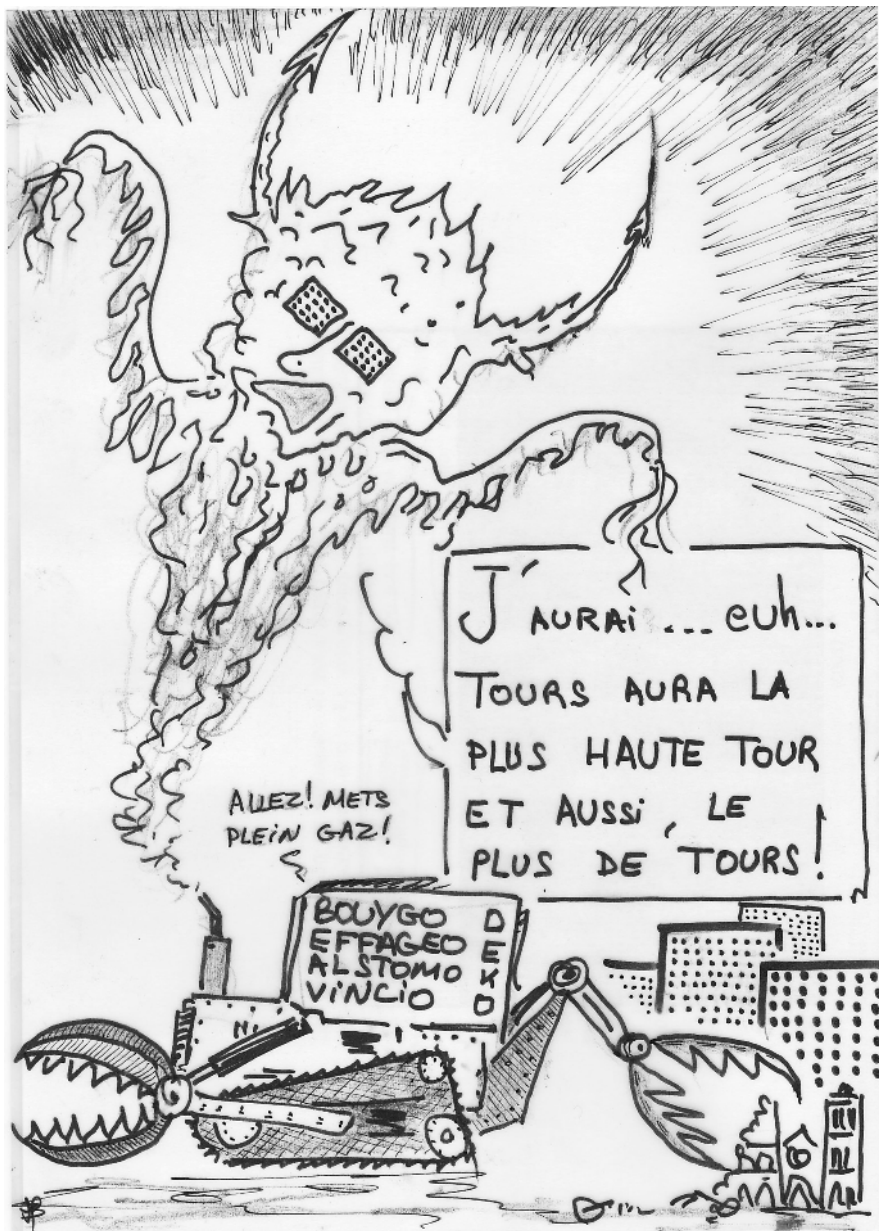 J'AURAi ... euh...
TOURS AURA LA
PLUS HAUTE TOUR
ET AUSSi, LE
PLUS DE TOURS!
ALLEZ! METS
PLEiN GAZ!
BOUYGO
EFFAGEO
ALSTOMO
ViNCiO
DEXO